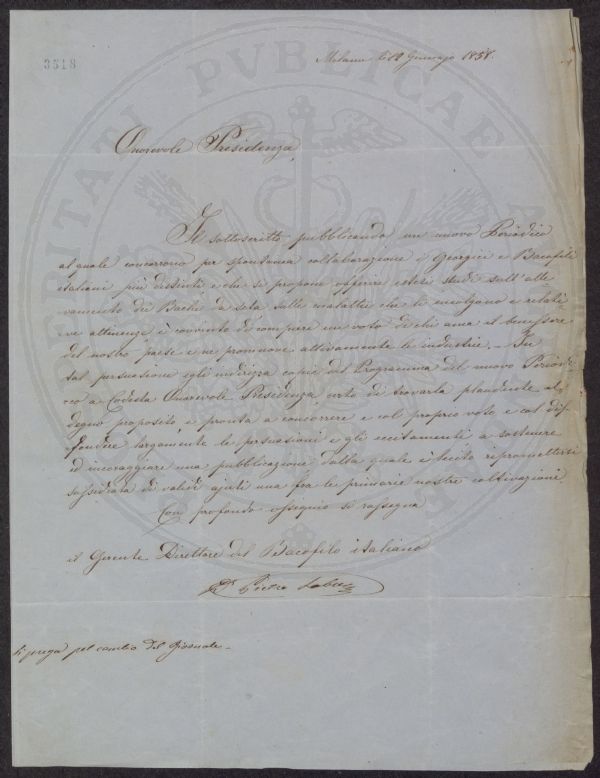 3518
Milano li 12 Gennajo 1858.
Onorevole Presidenza
Il sottoscritto pubblicando un nuovo Periodico
al quale concorrono per spontanea collaborazione i Georgici e Bacofili
italiani più distinti e che si propone offerire estesi studi sull'alle
vamento dei Bachi da seta sulle malattie che li incolgono e relati
ve attinenze è convinto di compiere un voto di chi ama il benessere
del nostro paese e ne promuove attivamente le industrie. - In
tal persuasione egli indirizza copia del Programma del nuovo Periodi
co a Codesta Onorevole Presidenza certo di trovarla plaudente al
degno proposito e pronta a concorrere e col proprio voto e col dif
fondere largamente le persuasioni e gli eccitamenti a sostenere
ed incoraggiare una pubblicazione dalla quale è lecito ripromettersi
sussidiata di validi ajuti una fra le primarie nostre coltivazioni
Con profondo ossequio si rassegna
il Gerente Direttore del Bacofilo italiano
Dr. Pietro
Si prega pel cambio del Giornale -
PROSPERITATI PVBLICAE